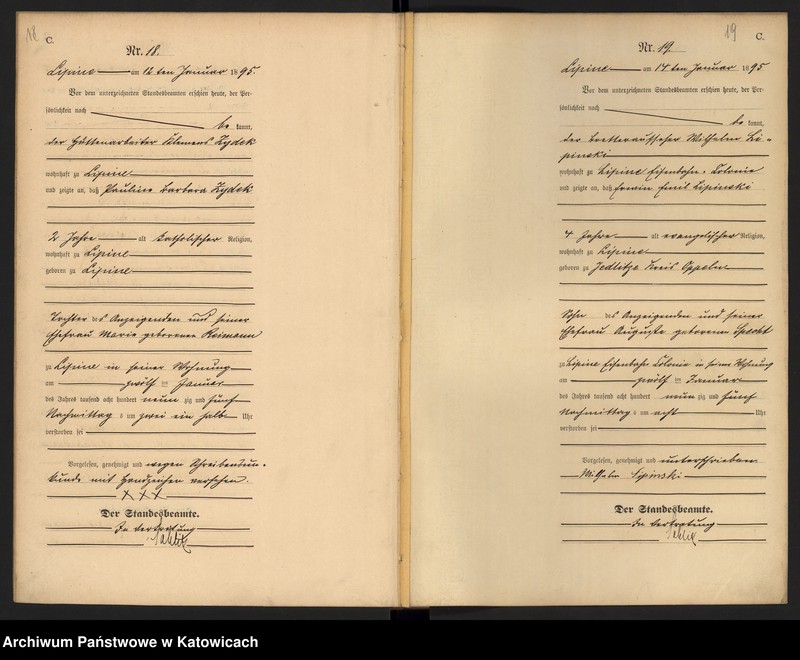 18
C.
Nr. 18.
Lipine am 12 ten Januar 1895.
Vor dem unterzeichneten Standesbeamten erschien heute, der Per-
sönlichkeit nach
be kannt,
der Hüttenarbeiter Klemens Zydek
wohnhaft zu Lipine
und zeigte an, daß Pauline Barbara Zydek
2 Jahre alt katholischer Religion,
wohnhaft zu Lipine
geboren zu Lipine
Tochter des Anzeigenden und seiner
Ehefrau Marie geborenen Reimann
zu Lipine in seiner Wohnung
am zwölf ten Januar
des Jahres tausend acht hundert neun zig und fünf
Nachmittag s um zwei ein halb Uhr
verstorben sei
Vorgelesen, genehmigt und wegen Schreibensun-
kunde mit Handzeichen versehen.
XXX
Der Standesbeamte.
In Vertretung
19
C.
Nr. 19.
Lipine am 14 ten Januar 1895
Vor dem unterzeichneten Standesbeamten erschien heute, der Per-
sönlichkeit nach
be kannt,
der Bretteraufseher Wilhelm Li-
pinski
wohnhaft zu Lipine Eisenbahn-Colonie
und zeigte an, daß Erwin Emil Lipinski
4 Jahre alt evangelischer Religion,
wohnhaft zu Lipine
geboren zu Jedlitze Kreis Oppeln
Sohn des Anzeigenden und seiner
Ehefrau Auguste geborenen Specht
zu Lipine Eisenbahn Colonie in seiner Wohnung
am zwölf ten Januar
des Jahres tausend acht hundert neun zig und fünf
Nachmittag s um acht Uhr
verstorben sei
Vorgelesen, genehmigt und unterschrieben
Wilhelm Lipinski
Der Standesbeamte.
In Vertretung
Archiwum Państwowe w Katowicach